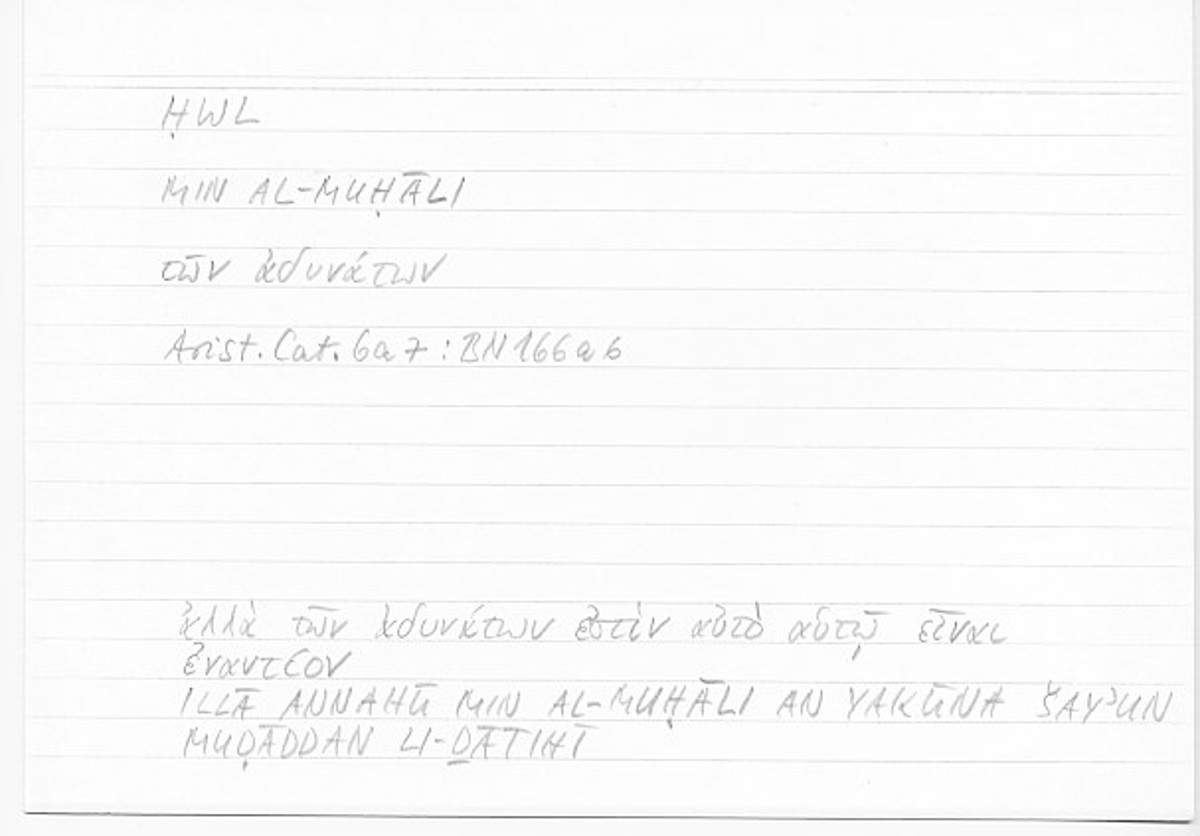 ḤWL
MIN AL-MUḤĀLI
τῶν ἀδυνάτων
Arist. Cat. 6a7 : BN166a6
ἀλλὰ τῶν ἀδυνάτων ἐστὶν αὐτὸ αὑτῷ εἶναι
ἐναντίον
ILLĀ ANNAHŪ MIN AL-MUḤĀLI AN YAKŪNA ŠAYʾUN
MUḌĀDDAN LI-ḎĀTIHĪ